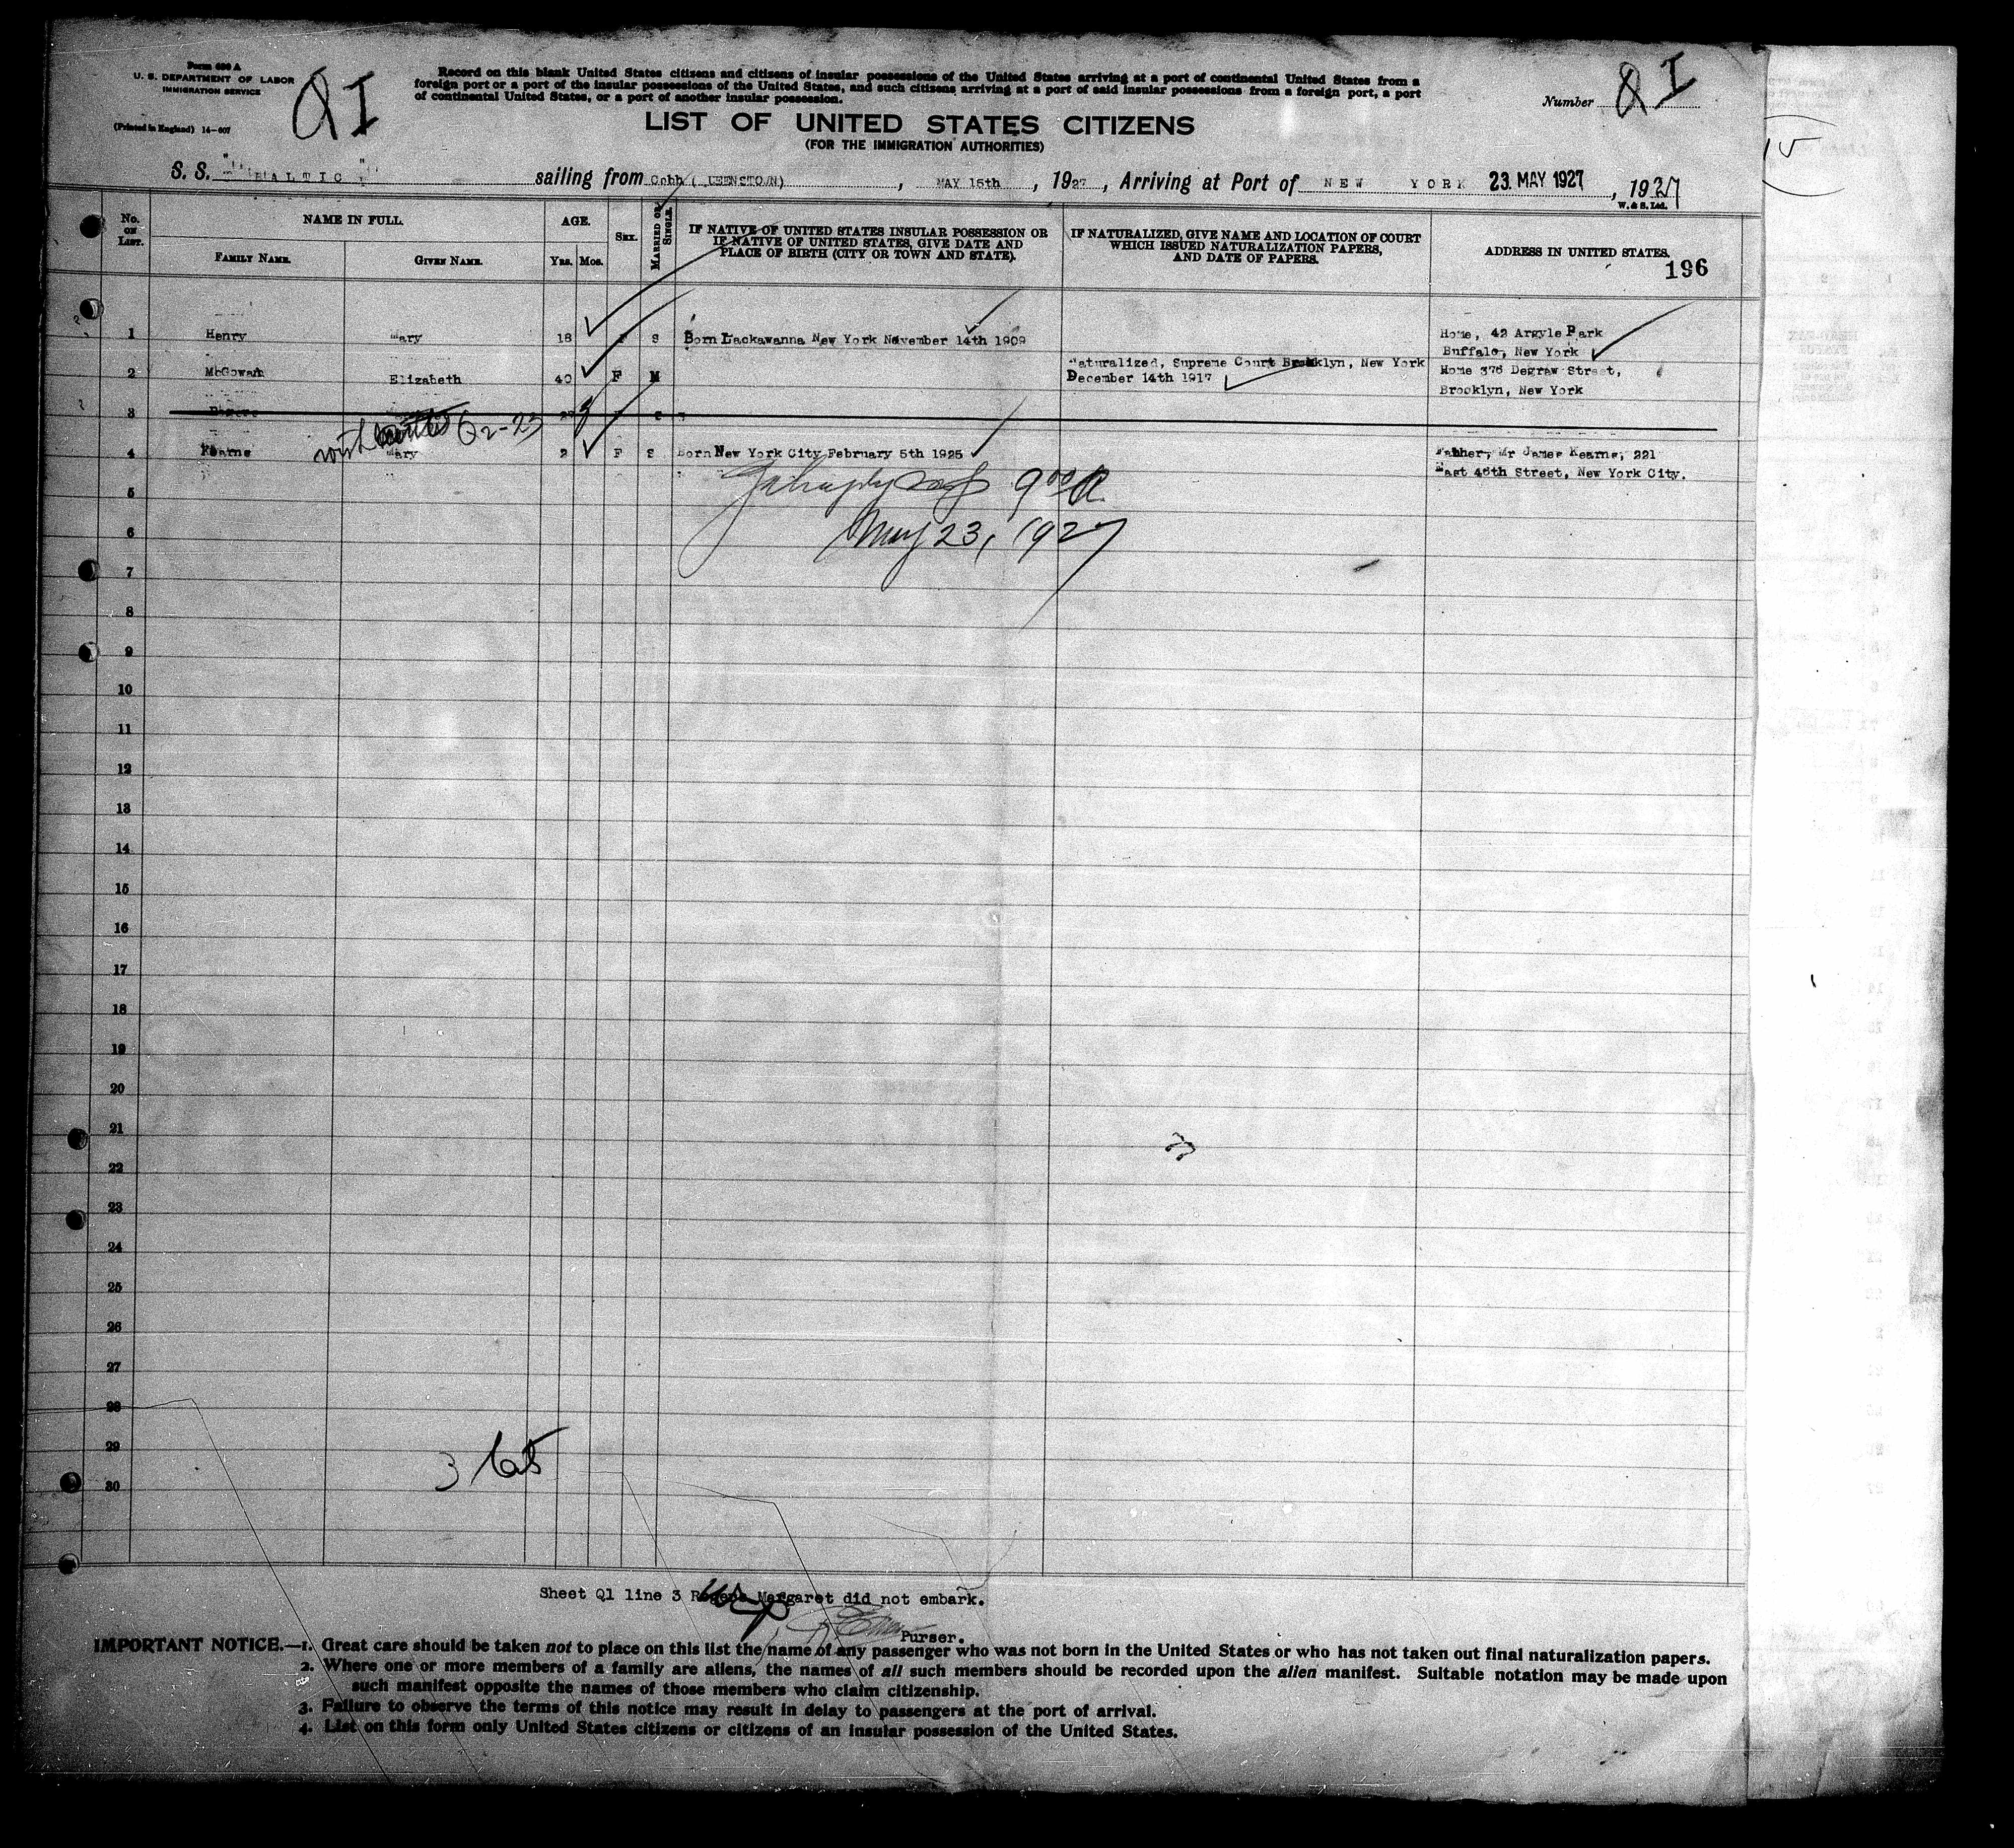 Form 630 A
U. S. DEPARTMENT OF LABOR
IMMIGRATION SERVICE
(Printed in England) 14-607
QI
Record on this blank United States citizens and citizens of insular possessions of the United States arriving at a port of continental United States from a
foreign port or a port of the insular possessions of the United States, and such citizens arriving at a port of said insular possessions from a foreign port, a port
of continental United States, or a port of another insular possession.
Number QI
LIST OF UNITED STATES CITIZENS
(FOR THE IMMIGRATION AUTHORITIES)
S. S. "BALTIC" sailing from Cobh ( UEENSTOWN) , MAY 15th , 1927 , Arriving at Port of NEW YORK 23. MAY 1927 , 1927
W. & S. Ltd.
No. ON LIST. NAME IN FULL. AGE. SEX. MARRIED OR SINGLE. IF NATIVE OF UNITED STATES INSULAR POSSESSION OR IF NATIVE OF UNITED STATES, GIVE DATE AND PLACE OF BIRTH (CITY OR TOWN AND STATE). IF NATURALIZED, GIVE NAME AND LOCATION OF COURT WHICH ISSUED NATURALIZATION PAPERS, AND DATE OF PAPERS. ADDRESS IN UNITED STATES.
FAMILY NAME. GIVEN NAME. YRS. MOS.
196
1 Henry Mary 18 F S Born Lackawanna New York November 14th 1909 Home, 42 Argyle Park
Buffalo, New York
2 McGowan Elizabeth 40 F M Naturalized, Supreme Court Brooklyn, New York Home 376 Degraw Street,
December 14th 1917 Brooklyn, New York
3
with Q2-23
4 Kearns Mary 2 F S Born New York City February 5th 1925 Father, Mr James Kearns, 221
East 46th Street, New York City.
9 00 A
May 23, 1927
5
6
7
8
9
10
11
12
13
14
15
16
17
18
19
20
21
22
23
24
25
26
27
28
29
30
3
Sheet Q1 line 3 Rogers Margaret did not embark.
Purser.
IMPORTANT NOTICE.—1. Great care should be taken not to place on this list the name of any passenger who was not born in the United States or who has not taken out final naturalization papers.
2. Where one or more members of a family are aliens, the names of all such members should be recorded upon the alien manifest. Suitable notation may be made upon
such manifest opposite the names of those members who claim citizenship.
3. Failure to observe the terms of this notice may result in delay to passengers at the port of arrival.
4. List on this form only United States citizens or citizens of an insular possession of the United States.
15